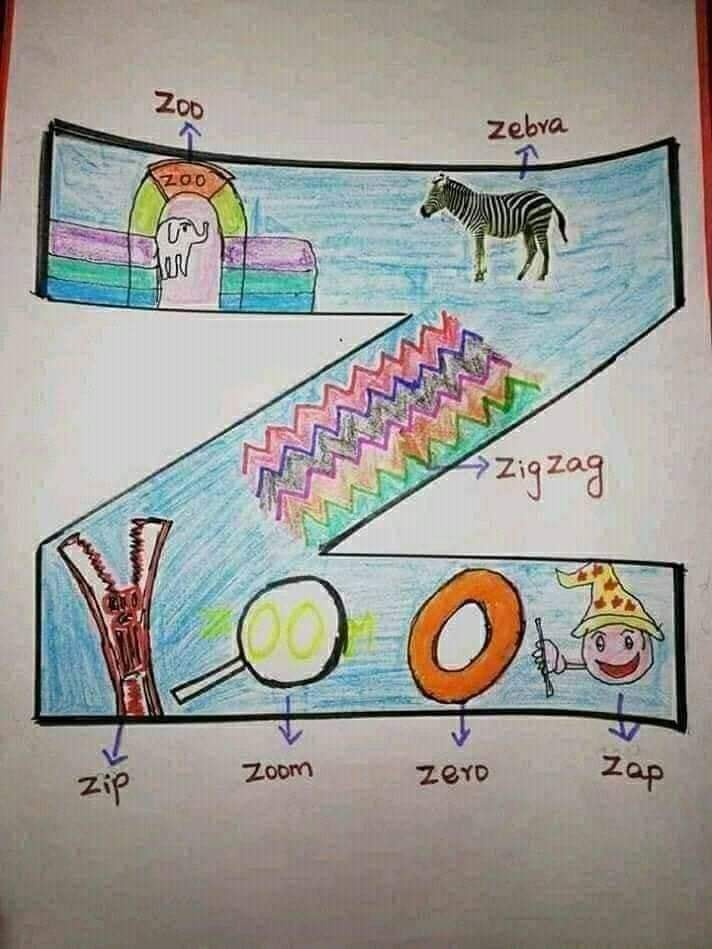 Zoo
zebra
ZOO
zigzag
ZOOM
zip
zoom
zero
zap